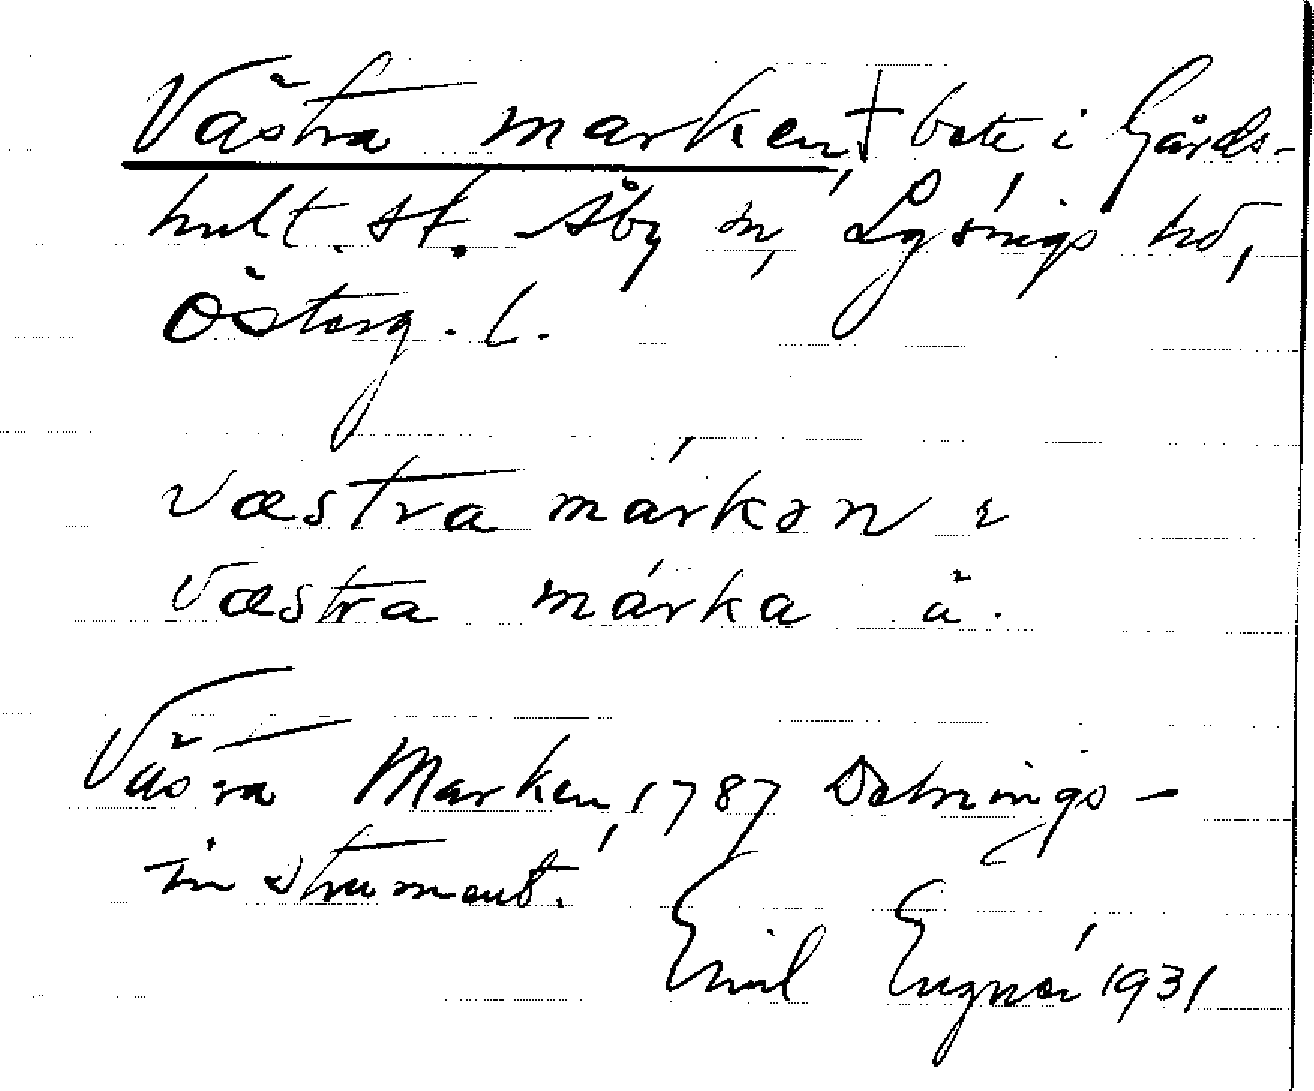 Västra marken, † bete i Gårds-
hult. st. Åby sn, Lysings hd,
Österg. l.
væstra márkən r
væstra márka ä.
Västra Marken, 1787 Delnings-
instrument.
Emil 1931